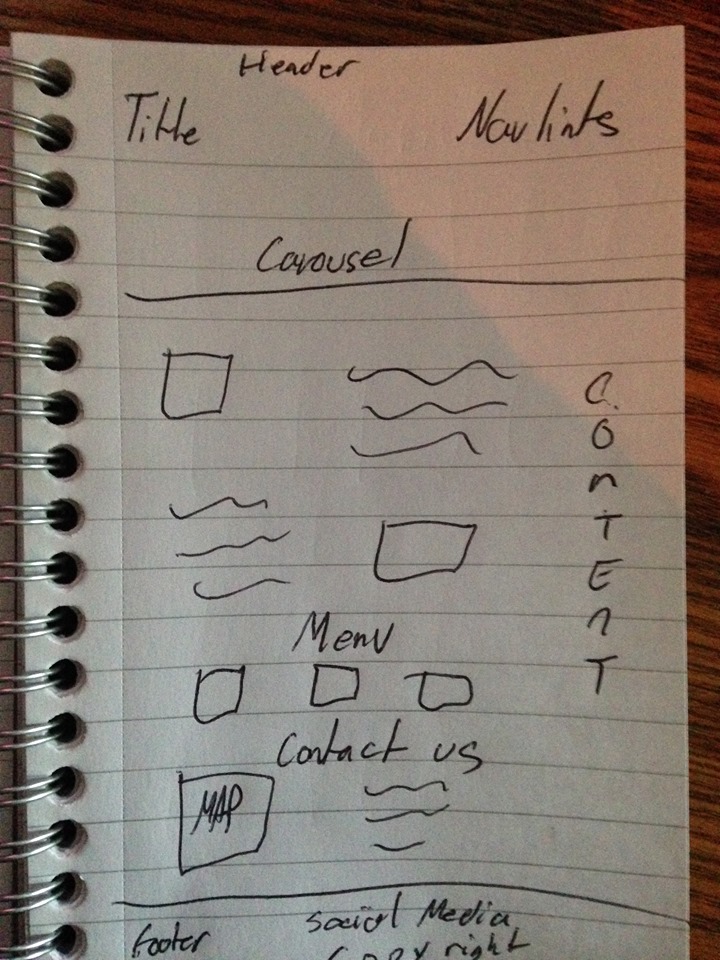 Header
Title Nav links
Carousel
CONTENT
Menu
Contact us
MAP
footer Social Media
Copyright